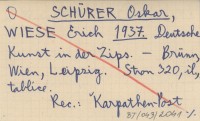 SCHÜRER Oskar,
WIESE Erich 1937. Deutsche
Kunst in der Zips. – Brünn,
Wien, Leipzig. Stron 320, il.,
tablice.
Rec.: "Karpathen Post
37/043/2041 %